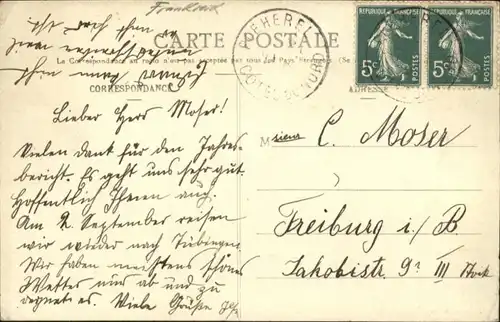 Frankreich
CARTE POSTALE
La Correspondance au recto n'est pas acceptée par tous les Pays Étrangers. (Se
CORRESPONDANCE
ADRESSE
PLEHEREL
CÔTES DU NORD
REPUBLIQUE FRANÇAISE
5c
POSTES
REPUBLIQUE FRANÇAISE
5c
POSTES
Lieber Herr Moser!
Vielen dank für den Jahres-
bericht. Es geht uns sehr gut.
Hoffentlich Ihnen auch.
Am 2. September reisen
wir wieder nach Tübingen
Wir haben meistens schönes
Wetter nur ab und zu
regnet es. Viele Grüße
Monsieur C. Moser
Freiburg i/B
Jakobistr. 9a III Stock